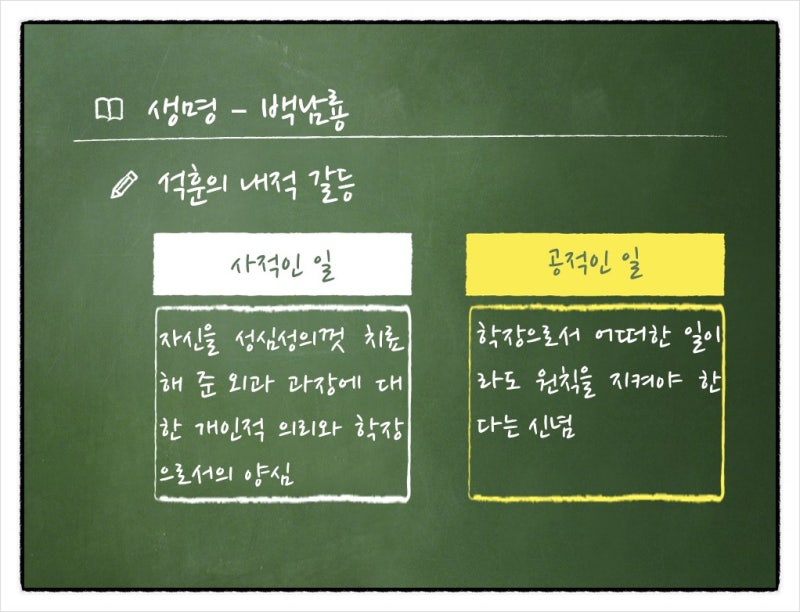 생명 – 백남룡
석훈의 내적 갈등
사적인 일
공적인 일
자신을 성심성의껏 치료
해 준 외과 과장에 대
한 개인적 의리와 학장
으로서의 양심
학장으로서 어떠한 일이
라도 원칙을 지켜야 한
다는 신념